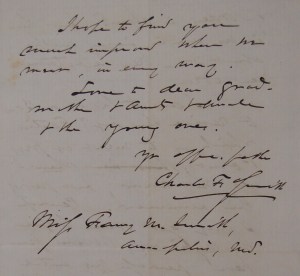 I hope to find you
much improved when we
meet, in every way.
Love to dear grand-
mother & Aunt &
& the young ones.
Yr affec. father
Charles F Smith
Miss Fanny M. Smith,
Annapolis, Md.